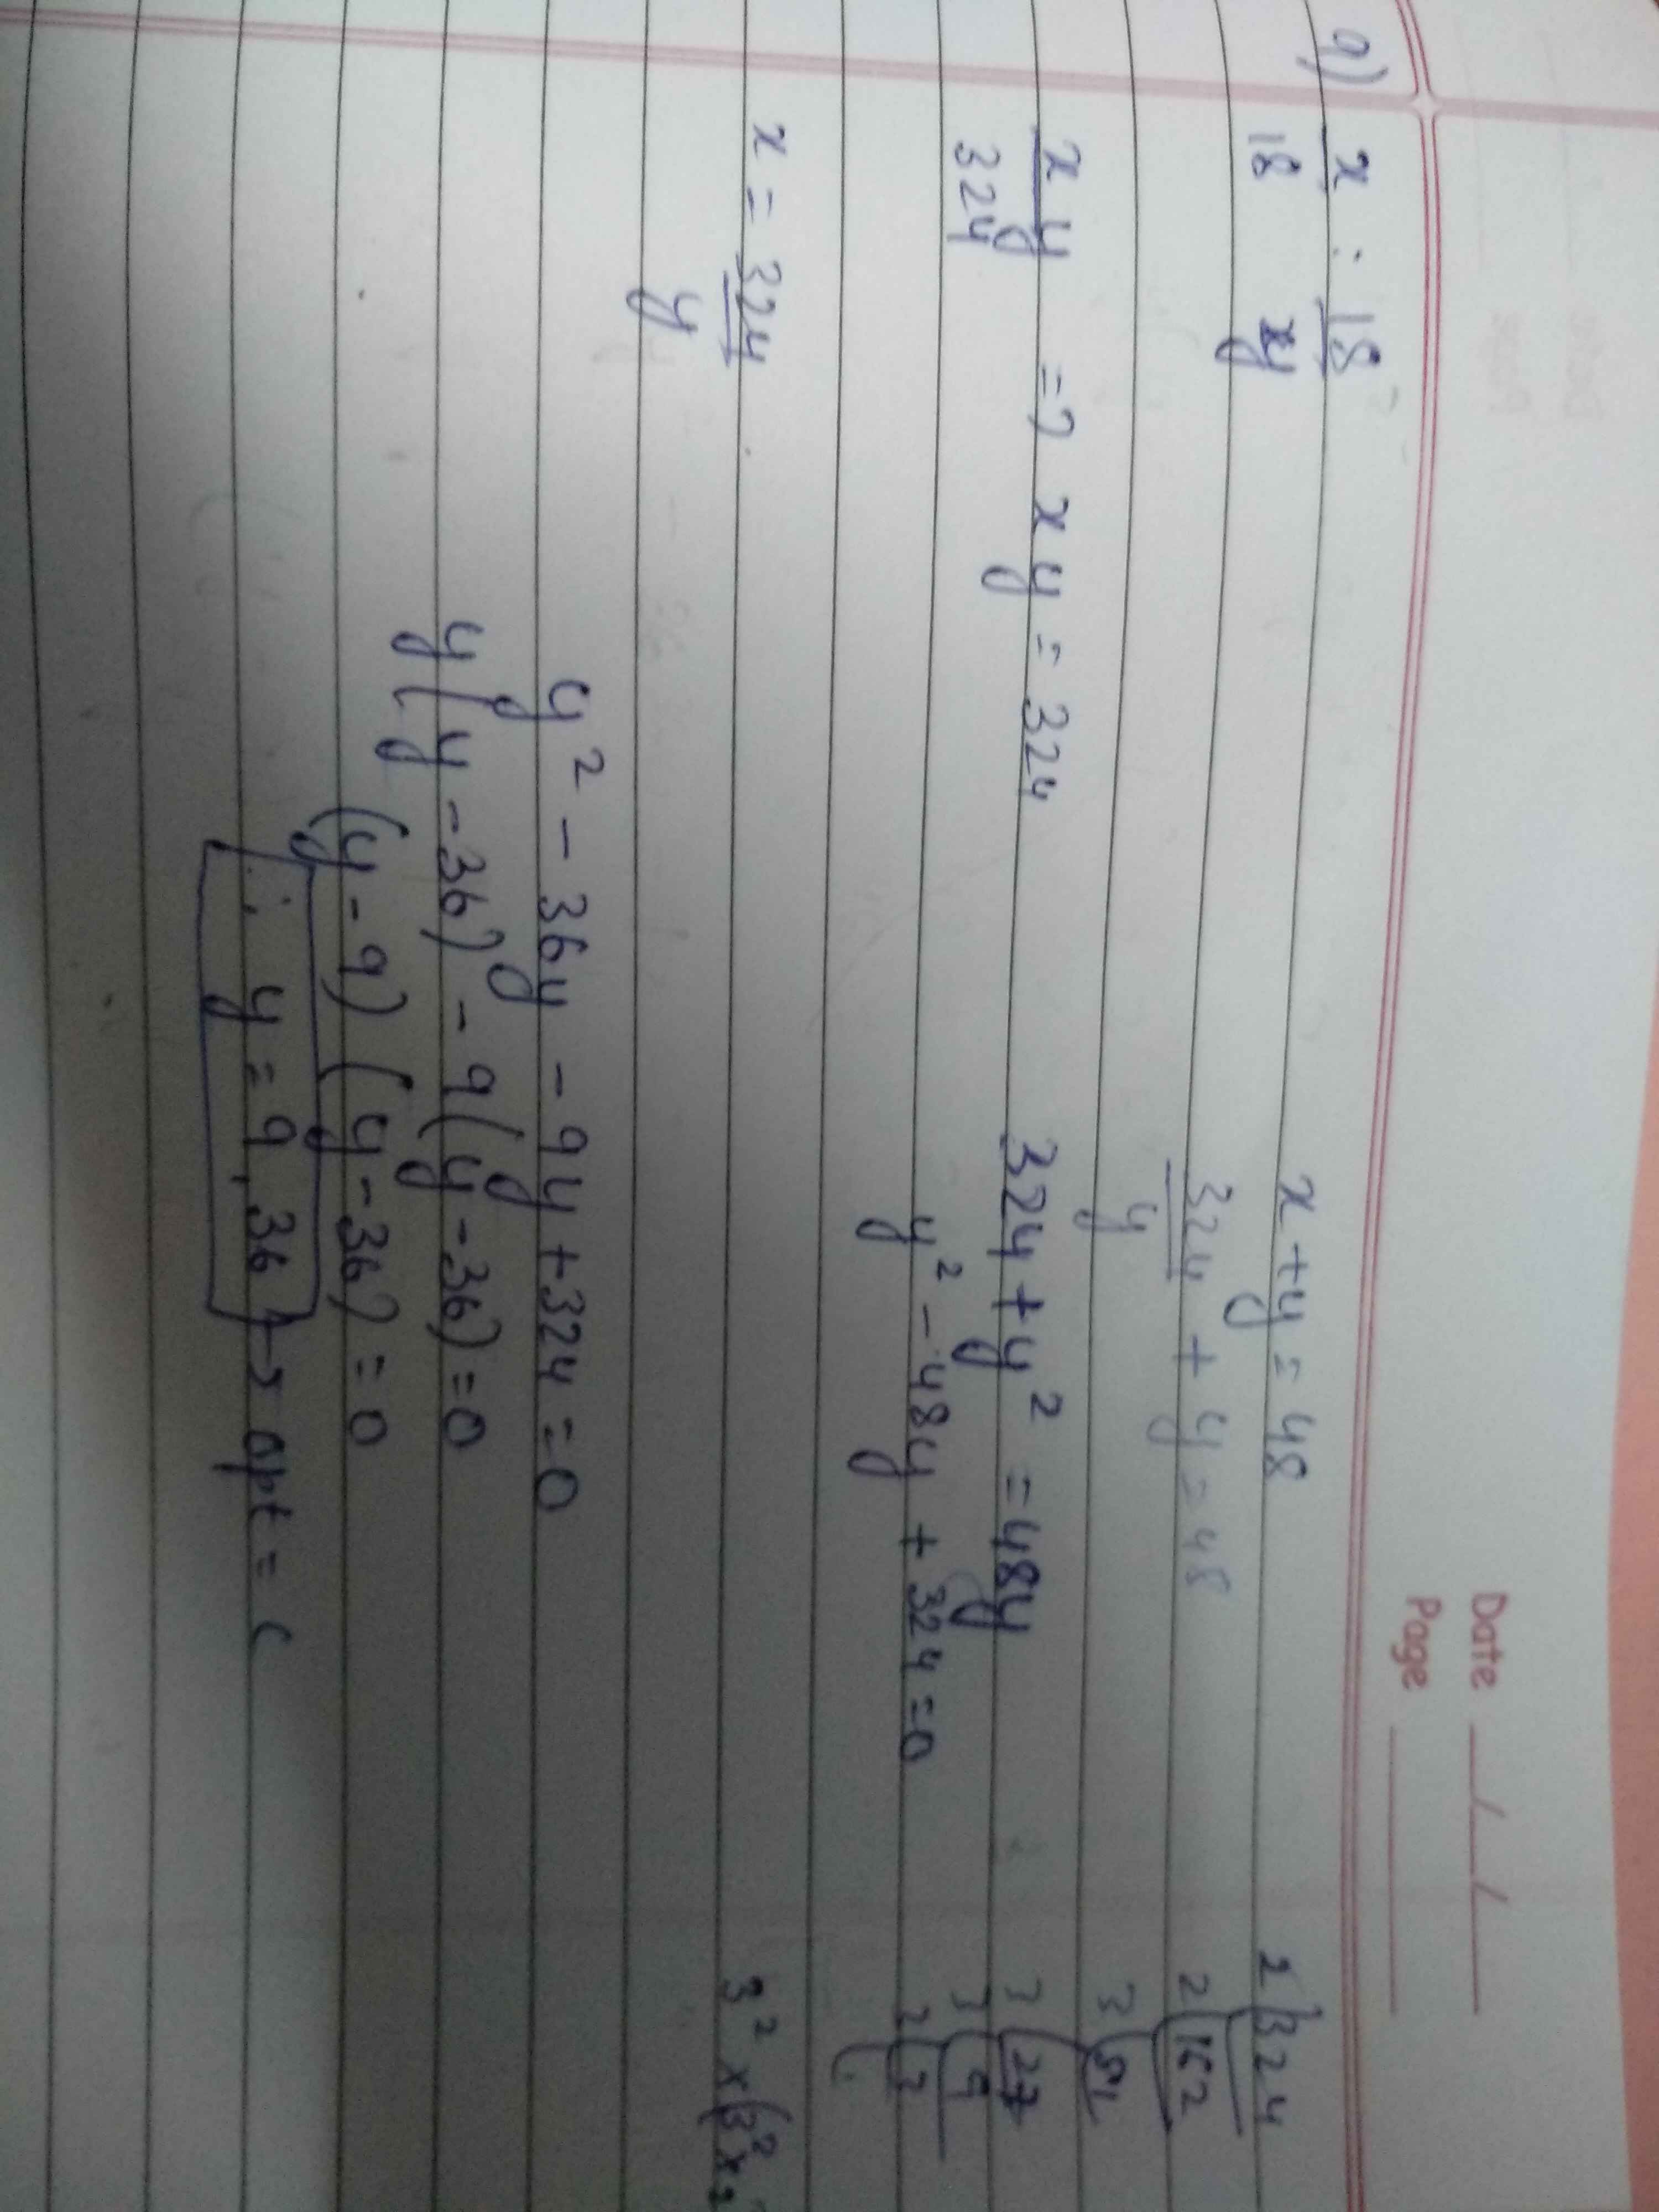 Date / /
Page
9) x/18 : 18/y
x + y = 48
324/y + y = 48
xy/324 => xy = 324
324 + y² = 48y
y² - 48y + 324 = 0
x = 324/y
y² - 36y - 9y + 324 = 0
y(y - 36) - 9(y - 36) = 0
(y - 9) (y - 36) = 0
∴ y = 9, 36 → opt = c
2 324
2 162
3 81
3 27
3 9
3
3² x (3² x 2